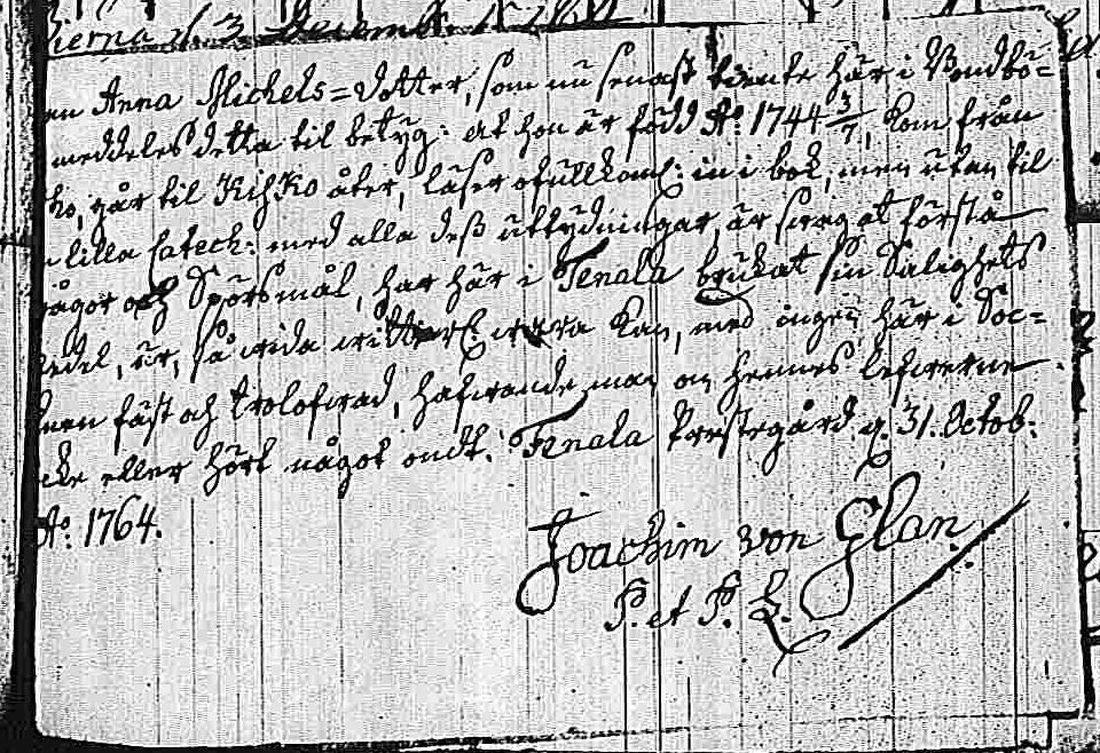 ierna d. 3 Decemb.
en Anna Michels=dotter, som nu senast tiente här i Bondbö=
meddeles detta til betyg: at hon är född Ao: 1744 3/7, kom från
ko, går til Kihko åter, läser ofullkoml: in i bok, men utan til
lilla Catech: med alla deß uttydningar, är swag at förstå
någor och Spörsmål, har här i Tenala brukat sin Salighets
medel, är, så wida witterl. wara kan, med ingen här i Soc=
knen fäst och trolofwad, hafwande man om hennes lefwerne
icke eller hört något ondt. Tenala Prestegård d. 31. Octob:
Ao: 1764.
Joachim von Glan.
P. et P. L.